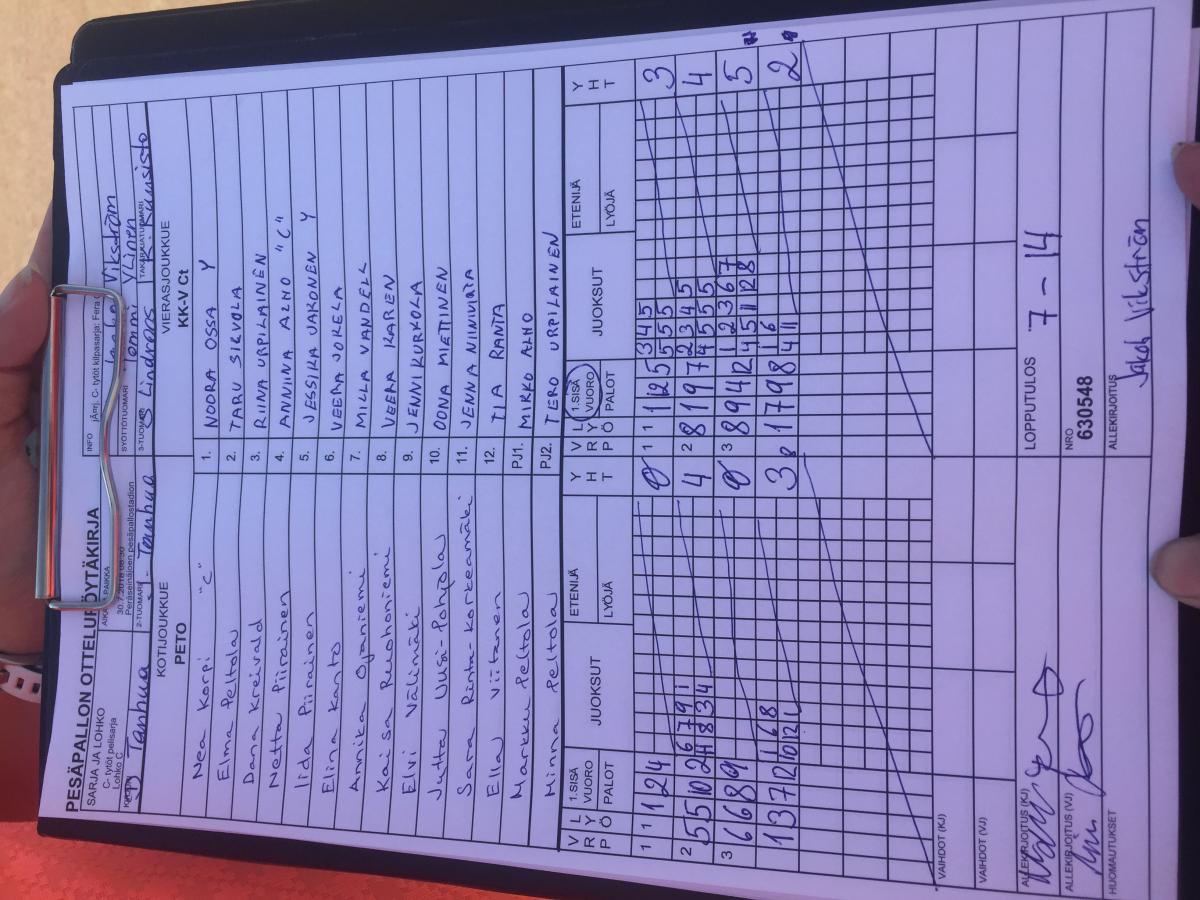 PESÄPALLON OTTELUPÖYTÄKIRJA
SARJA JA LOHKO
C- tytöt pelisarja
Lohko C
30.7.2018 08:30
Peräseinäjoen pesäpallostadion
INFO
järj. C- tytöt kilpasarja: Fera
Vikström
SYÖTTÖTUOMARI
Tommi Ylinen
Tanhua
2-TUOMARI
Tanhua
3-TUOMARI
Lindroos
TAKARAJATUOMARI
KOTIJOUKKUE
PETO
VIERASJOUKKUE
KK-V Ct
Nea Korpi "C" 1. NOORA OSSA Y
Elma Peltola 2. TARU SILVOLA
Dana Kreivald 3. RIINA URPILAINEN
Netta Piirainen 4. ANNIINA ALHO "C"
Iida Piirainen 5. JESSIKA JAKONEN Y
Elina Kanto 6. VEERA JOKELA
Annika Ojaniemi 7. MILLA VANDELL
Kaisa Ruohoniemi 8. VEERA KAREN
Elvi Välimäki 9. JENNI KURKOLA
Jutta Uusi-Pohjola 10. OONA MIETTINEN
Sara Rinta-Korkeamäki 11. JENNA NIINIVIRTA
Ella Viitanen 12. TIA RANTA
Markku Peltola PJ1. MIKKO ALHO
Minna Peltola PJ2. TERO URPILAINEN
V R L Y Ö 1.SISÄ VUORO PALOT JUOKSUT ETENIJÄ LYÖJÄ Y H T V R L Y Ö 1.SISÄ VUORO PALOT JUOKSUT ETENIJÄ LYÖJÄ Y H T
1 1 1 2 4 0 1 1 1 12 5 3 4 5 3
5 5 5
2 5 5 10 2 6 7 9 1 4 2 8 1 9 7 2 3 4 5 4
11 8 3 4 4 5 5 5
3 6 6 8 9 0 3 8 9 4 12 1 2 3 6 7 5
4 5 11 12 8
1 3 7 12 1 6 8 3 1 7 9 8 1 6 2
10 12 1 4 11
VAIHDOT (KJ)
VAIHDOT (VJ)
ALLEKIRJOITUS (KJ)
LOPPUTULOS 7 - 14
ALLEKIRJOITUS (VJ)
NRO
630548
HUOMAUTUKSET
ALLEKIRJOITUS
Jakob Vikström